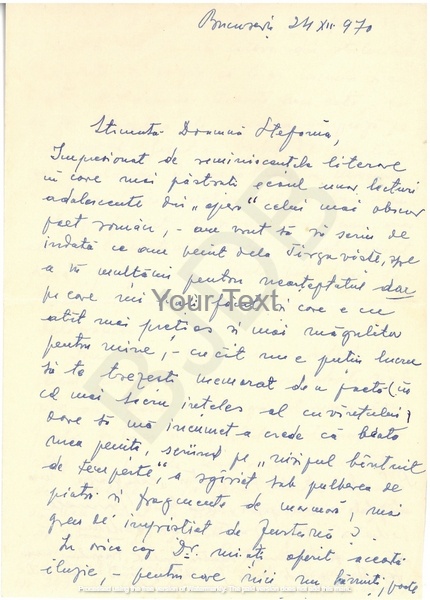 București 24 XII 970
Stimată Doamnă Ștefania,
Impresionat de reminiscențele literare
în care mai păstrați ecoul unor lecturi
adolescente din „opera" celui mai obscur
poet român, – am vrut să vă scriu de
îndată ce am venit dela Tîrgoviște, spre
a vă mulțămi pentru neașteptatul dar
pe care mi l-ați făcut și care e cu
atît mai prețios și mai măgulitor
pentru mine, – cu cît nu e puțin lucru
să te trezești memorat de un poeta (în
cel mai bun înțeles al cuvîntului)
Oare să mă încumet a crede că biata
mea peniță, scriind pe „nisipul bîntuit
de tempeste", a zgîriat sub pulberea de
piatră și fragmente de marmoră, mai
greu de împrăștiat de furtună?
În orice caz Dv. mi-ați oferit această
iluzie, – pentru care nici nu bănuiți, poate
Your Text
BJDB